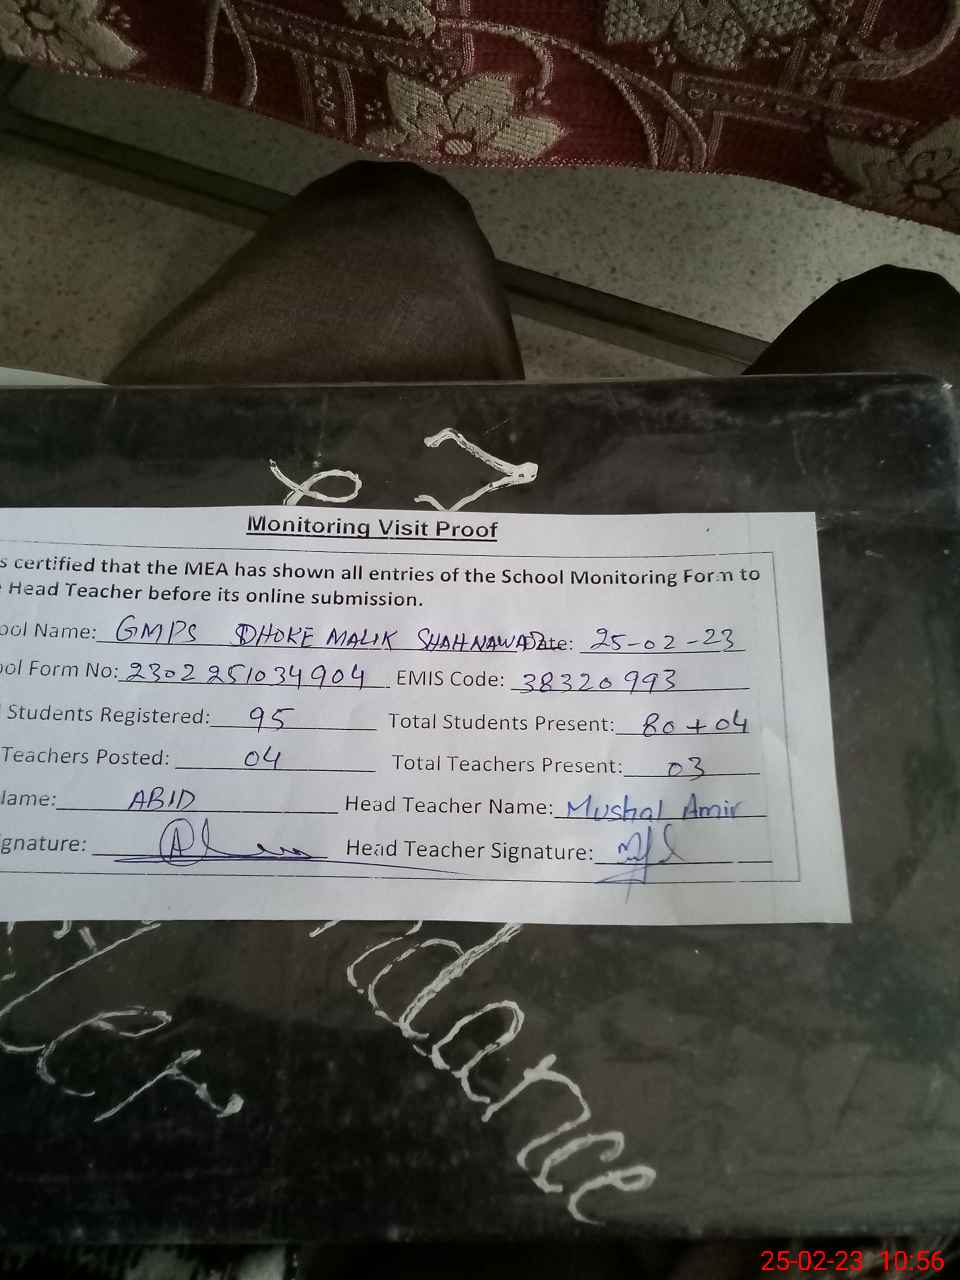 Monitoring Visit Proof
s certified that the MEA has shown all entries of the School Monitoring Form to
Head Teacher before its online submission.
ool Name: GMPS DHOKE MALIK SHAHNAWAZ Date: 25-02-23
ool Form No: 2302 251034904 EMIS Code: 38320993
Students Registered: 95 Total Students Present: 80+04
Teachers Posted: 04 Total Teachers Present: 03
Name: ABID Head Teacher Name: Mushal Amir
gnature: Head Teacher Signature:
ndance
25-02-23 10:56